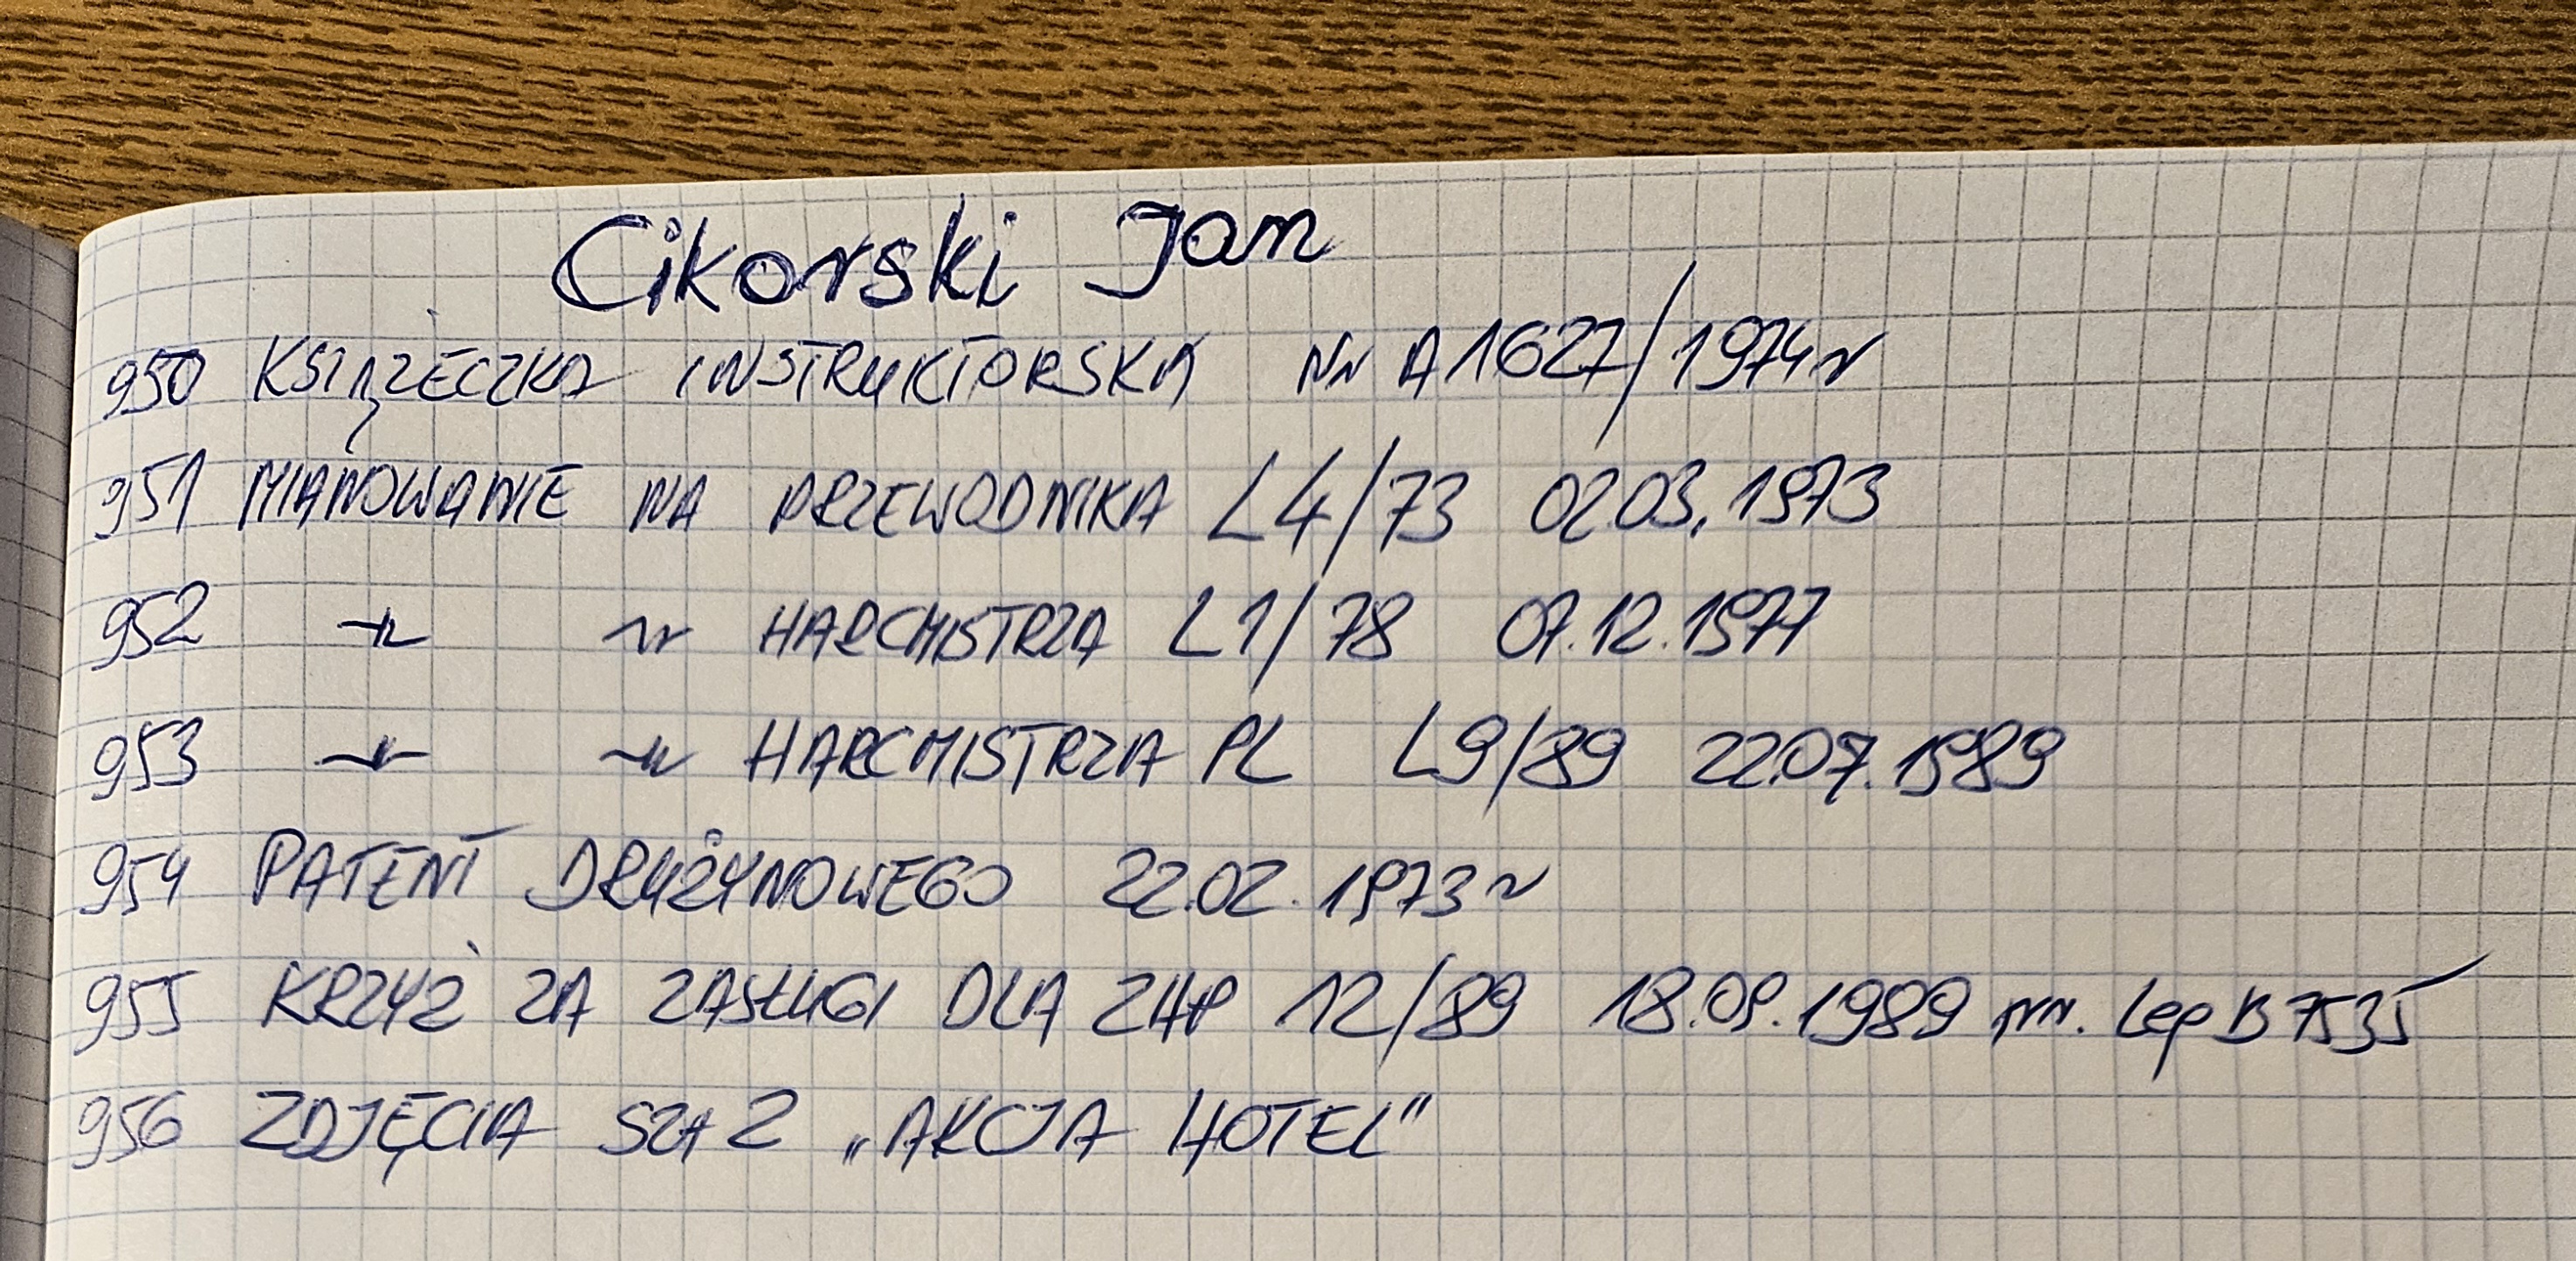 Cikorski Jan
950 KSIĄŻECZKA INSTRUKTORSKA Nr A1627/1974r
951 MIANOWANIE NA PRZEWODNIKA L4/73 02.03.1973
952 -"- -"- HARCMISTRZA L1/78 07.12.1977
953 -"- -"- HARCMISTRZA PL L9/89 22.07.1989
954 PATENT DRUŻYNOWEGO 22.02.1973r
955 KRZYŻ ZA ZASŁUGI DLA ZHP 12/89 18.09.1989 nr. Leg B 7535
956 ZDJĘCIA SZT 2 „AKCJA HOTEL"